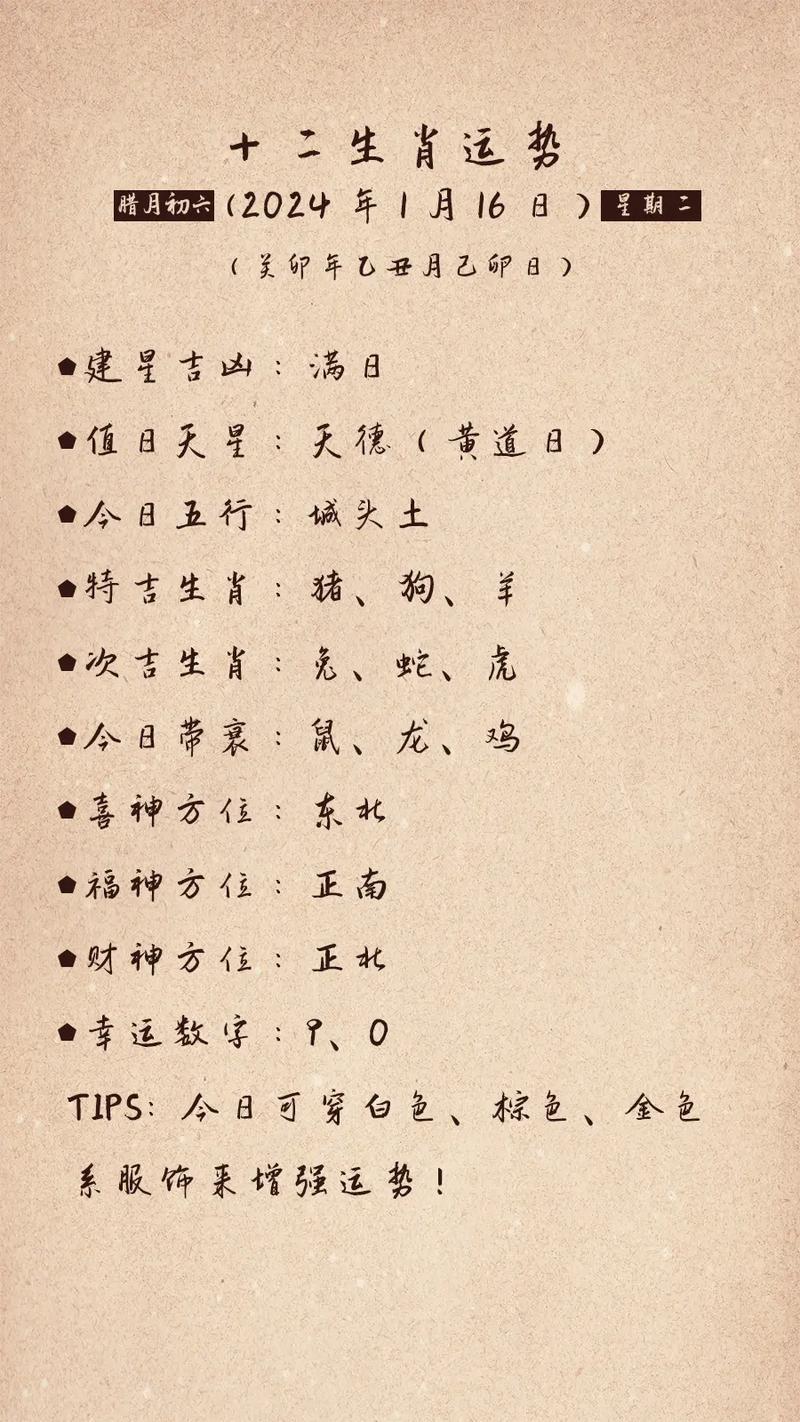 十二生肖运势
腊月初六(2024年1月16日)星期二
(癸卯年乙丑月己卯日)
建星吉凶:满日
值日天星:天德(黄道日)
今日五行:城头土
特吉生肖:猪、狗、羊
次吉生肖:兔、蛇、虎
今日带衰:鼠、龙、鸡
喜神方位:东北
福神方位:正南
财神方位:正北
幸运数字:9、0
TIPS:今日可穿白色、棕色、金色
系服饰来增强运势!